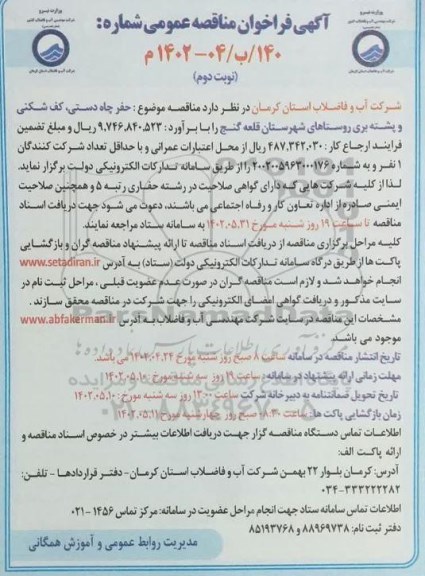 آگهی فراخوان مناقصه عمومی شماره:
۱۴۰/ب/۰۴-۱۴۰۲ م
(نوبت دوم)
شرکت آب و فاضلاب استان کرمان در نظر دارد مناقصه موضوع : حفر چاه دستی، کف شکنی
و پشته بری روستاهای شهرستان قلعه گنج را با برآورد : ۹.۷۴۶.۸۴۰.۵۲۳ ریال و مبلغ تضمین
فرایند ارجاع کار : ۴۸۷.۳۴۲.۰۳۰ ریال از محل اعتبارات عمرانی و با حداقل تعداد شرکت کنندگان
۱ نفر و به شماره ۲۰۰۲۰۰۵۹۶۲۰۰۰۱۷۶ را از طریق سامانه تدارکات الکترونیکی دولت برگزار نماید.
لذا از کلیه شرکت هایی که دارای گواهی صلاحیت در رشته حفاری رتبه ۵ و همچنین صلاحیت
ایمنی صادره از اداره تعاون کار و رفاه اجتماعی می باشند، دعوت می شود جهت دریافت اسناد
مناقصه تا ساعت ۱۹ روز شنبه مورخ ۱۴۰۲.۰۵.۳۱ به سامانه ستاد مراجعه نمایند.
کلیه مراحل برگزاری مناقصه از دریافت اسناد مناقصه تا ارائه پیشنهاد مناقصه گران و بازگشایی
پاکت ها از طریق درگاه سامانه تدارکات الکترونیکی دولت (ستاد) به آدرس www.setadiran.ir
انجام خواهد شد و لازم است مناقصه گران در صورت عدم عضویت قبلی ، مراحل ثبت نام در
سایت مذکور و دریافت گواهی امضای الکترونیکی را جهت شرکت در مناقصه محقق سازند .
مشخصات این مناقصه در سایت شرکت مهندسی آب و فاضلاب به آدرس www.abfakerman.ir
موجود می باشد.
تاریخ انتشار مناقصه در سامانه ساعت ۸ صبح روز شنبه مورخ ۱۴۰۲.۰۴.۲۴ می باشد.
مهلت زمانی ارائه پیشنهاد در سامانه: ساعت ۱۹ روز سه شنبه مورخ ۱۴۰۲.۰۵.۱۰
تاریخ تحویل ضمانتنامه به دبیرخانه شرکت ساعت ۱۳:۰۰ روز سه شنبه مورخ : ۱۴۰۲.۰۵.۱۰
زمان بازگشایی پاکت ها: ساعت ۸:۳۰ صبح روز چهارشنبه مورخ ۱۴۰۲.۰۵.۱۱
اطلاعات تماس دستگاه مناقصه گزار جهت دریافت اطلاعات بیشتر در خصوص اسناد مناقصه و
ارائه پاکت الف:
آدرس: کرمان بلوار ۲۲ بهمن شرکت آب و فاضلاب استان کرمان- دفتر قراردادها - تلفن:
۰۳۴-۳۳۳۲۲۲۸۲
اطلاعات تماس سامانه ستاد جهت انجام مراحل عضویت در سامانه: مرکز تماس ۱۴۵۶-۰۲۱
دفتر ثبت نام: ۸۸۹۶۹۷۳۸ و ۸۵۱۹۳۷۶۸
مدیریت روابط عمومی و آموزش همگانی